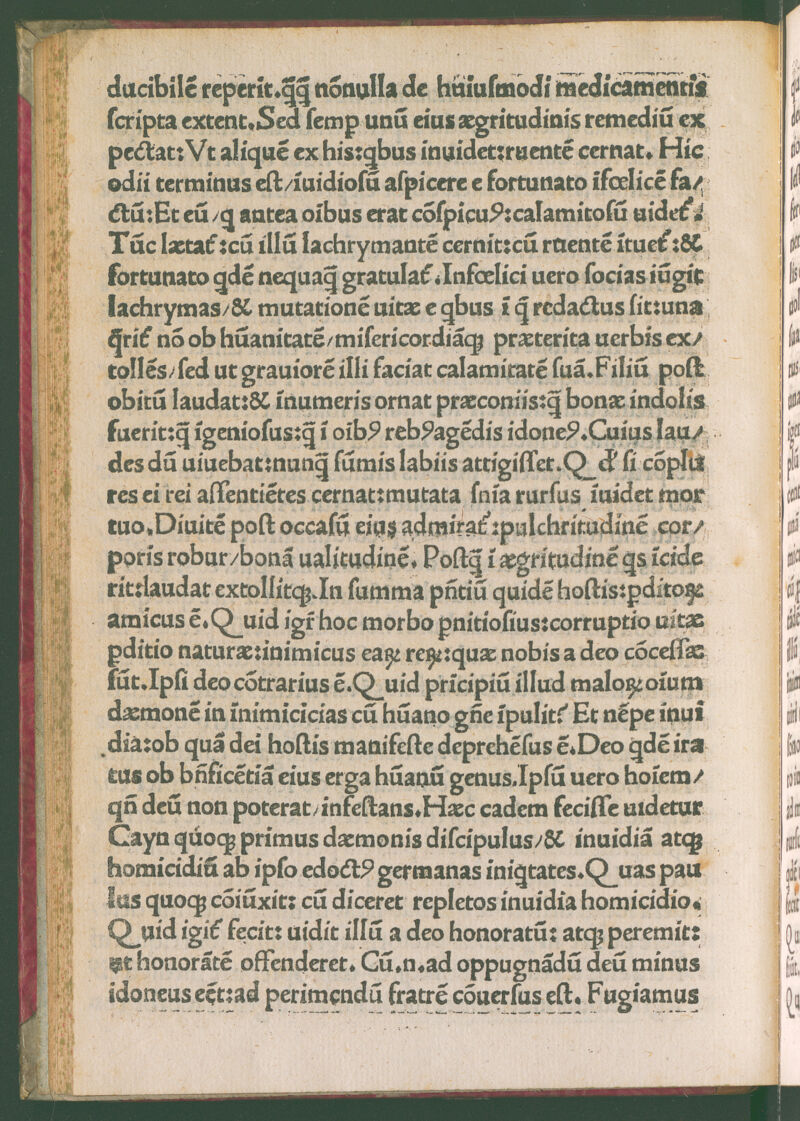 ducibilē reperit.q̄q̄ nōnulla de huiuſmodi medicamentis
ſcripta extent.Sed ſemp unū eius ægritudinis remediū ex
pectat:Vt aliquē ex his:qbus inuidet:ruentē cernat. Hic
odii terminus eſt/īuidioſū aſpicere e fortunato īfœlicē fa/
ctū:Et eū/q antea oībus erat cōſpicuꝰ:calamitoſū uidet᷑.
Tūc lætat᷑:cū illū lachrymantē cernit:cū ruentē ītuet᷑:&
fortunato qdē nequaq̄ gratulat᷑.Infœlici uero ſocias iūgit
lachrymas/& mutationē uitæ e qbus ī q̄ redactus ſit:una
q̄rit᷑ nō ob hūanitatē/miſericordiāqꝫ præterita uerbis ex/
tollēs/ſed ut grauiorē illi faciat calamitatē ſuā.Filiū poſt
obitū laudat:& īnumeris ornat præconiis:q̄ bonæ indolis
fuerit:q̄ īgenioſus:q̄ ī oībꝰ rebꝰagēdis idoneꝰ.Cuius lau/
des dū uiuebat:nunq̄ ſūmis labiis attigiſſet.Q d᷑ ſi cōplu
res ei rei aſſentiētes cernat:mutata ſnīa rurſus īuidet mor
tuo.Diuitē poſt occaſū eius admirat᷑:pulchritudinē cor/
poris robur/bonā ualitudinē. Poſtq̄ ī ægritudinē qs īcide
rit:laudat extollitqꝫ.In ſumma pn̄tiū quidē hoſtis:pditoꝝ
amicus ē.Quid igr̄ hoc morbo pnitioſius:corruptio uitæ
pditio naturæ:inimicus eaꝝ reꝝ:quæ nobis a deo cōceſſæ
ſūt.Ipſi deo cōtrarius ē.Quid prīcipiū illud maloꝝ oīum
dæmonē in īnimicicias cū hūano gn̄e īpulit? Et nēpe inui
dia:ob quā dei hoſtis manifeſte deprehēſus ē.Deo qdē ira
tus ob bn̄ficētiā eius erga hūanū genus.Ipſū uero hoīem/
qn̄ deū non poterat/infeſtans.Hæc eadem feciſſe uidetur
Cayn quoqꝫ primus dæmonis diſcipulus/& inuidiā atqꝫ
homicidiū ab ipſo edoctꝰ germanas iniqtates.Quas pau
lus quoqꝫ cōiūxit: cū diceret repletos inuidia homicidio.
Quid igit᷑ fecit: uidit illū a deo honoratū: atqꝫ peremit:
ut honorātē offenderet. Cū.n.ad oppugnādū deū minus
idoneus eēt:ad perimendū fratrē cōuerſus eſt. Fugiamus